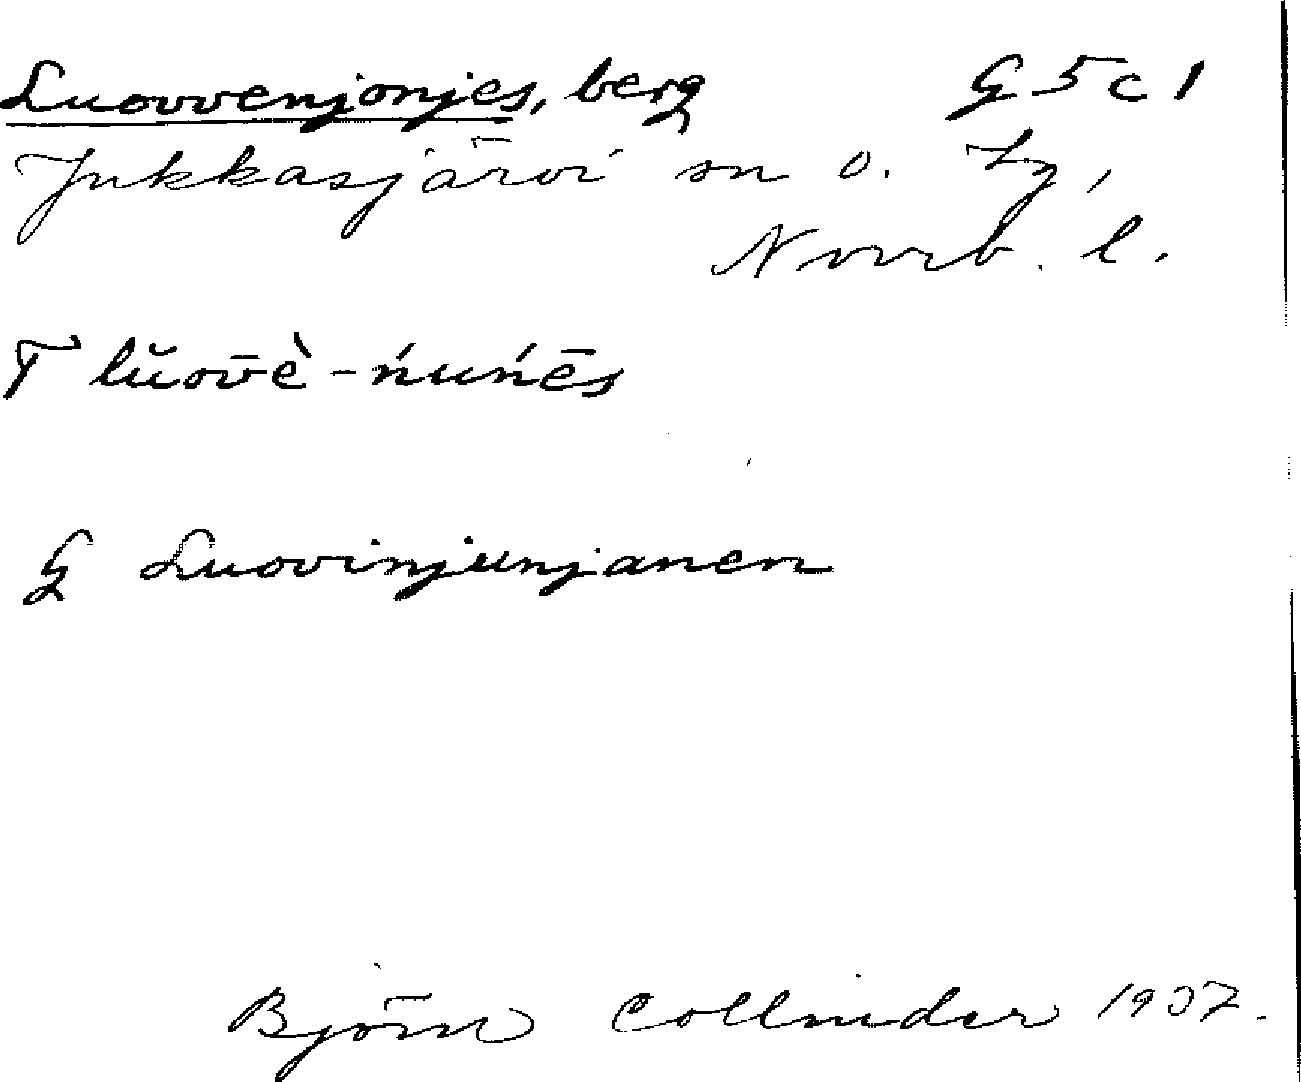 Luovvenjonjes, berg G 5 c 1
Jukkasjärvi sn o. tg,
Norrb. l.
T lŭov̄è-ńuńēs
G Luovinjunjanen
Björn Collinder 1937.